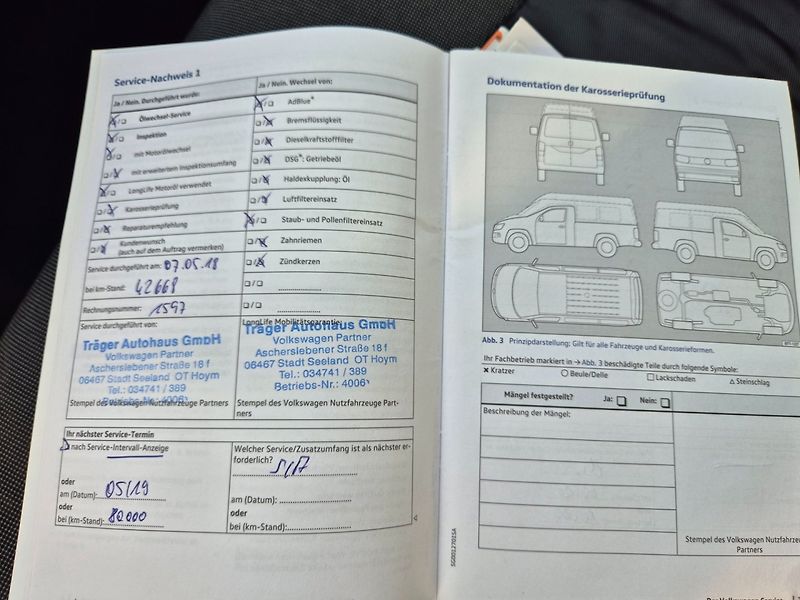 Service-Nachweis 1
Ja / Nein. Durchgeführt wurde:
Ölwechsel-Service
Inspektion
mit Motorölwechsel
mit erweitertem Inspektionsumfang
LongLife Motoröl verwendet
Karosserieprüfung
Reparaturempfehlung
Kundenwunsch
(auch auf dem Auftrag vermerken)
Service durchgeführt am: 07.05.18
bei km-Stand: 42668
Rechnungsnummer: 1597
Service durchgeführt von:
Träger Autohaus GmbH
Volkswagen Partner
Ascherslebener Straße 18 f
06467 Stadt Seeland OT Hoym
Tel.: 034741 / 389
Stempel des Volkswagen Nutzfahrzeuge Partners
Ja / Nein. Wechsel von:
AdBlue®
Bremsflüssigkeit
Dieselkraftstofffilter
DSG®: Getriebeöl
Haldexkupplung: Öl
Luftfiltereinsatz
Staub- und Pollenfiltereinsatz
Zahnriemen
Zündkerzen
LongLife Mobilitätsgarantie:
Träger Autohaus GmbH
Volkswagen Partner
Ascherslebener Straße 18 f
06467 Stadt Seeland OT Hoym
Tel.: 034741 / 389
Betriebs-Nr.: 4006
Stempel des Volkswagen Nutzfahrzeuge Part-
ners
Ihr nächster Service-Termin
nach Service-Intervall-Anzeige
oder
am (Datum): 05/19
oder
bei (km-Stand): 80000
Welcher Service/Zusatzumfang ist als nächster er-
forderlich?
am (Datum):
oder
bei (km-Stand):
Dokumentation der Karosserieprüfung
Abb. 3 Prinzipdarstellung: Gilt für alle Fahrzeuge und Karosserieformen.
Ihr Fachbetrieb markiert in → Abb. 3 beschädigte Teile durch folgende Symbole:
× Kratzer ○ Beule/Delle □ Lackschaden △ Steinschlag
Mängel festgestellt? Ja: Nein:
Beschreibung der Mängel:
Stempel des Volkswagen Nutzfahrzeuge
Partners